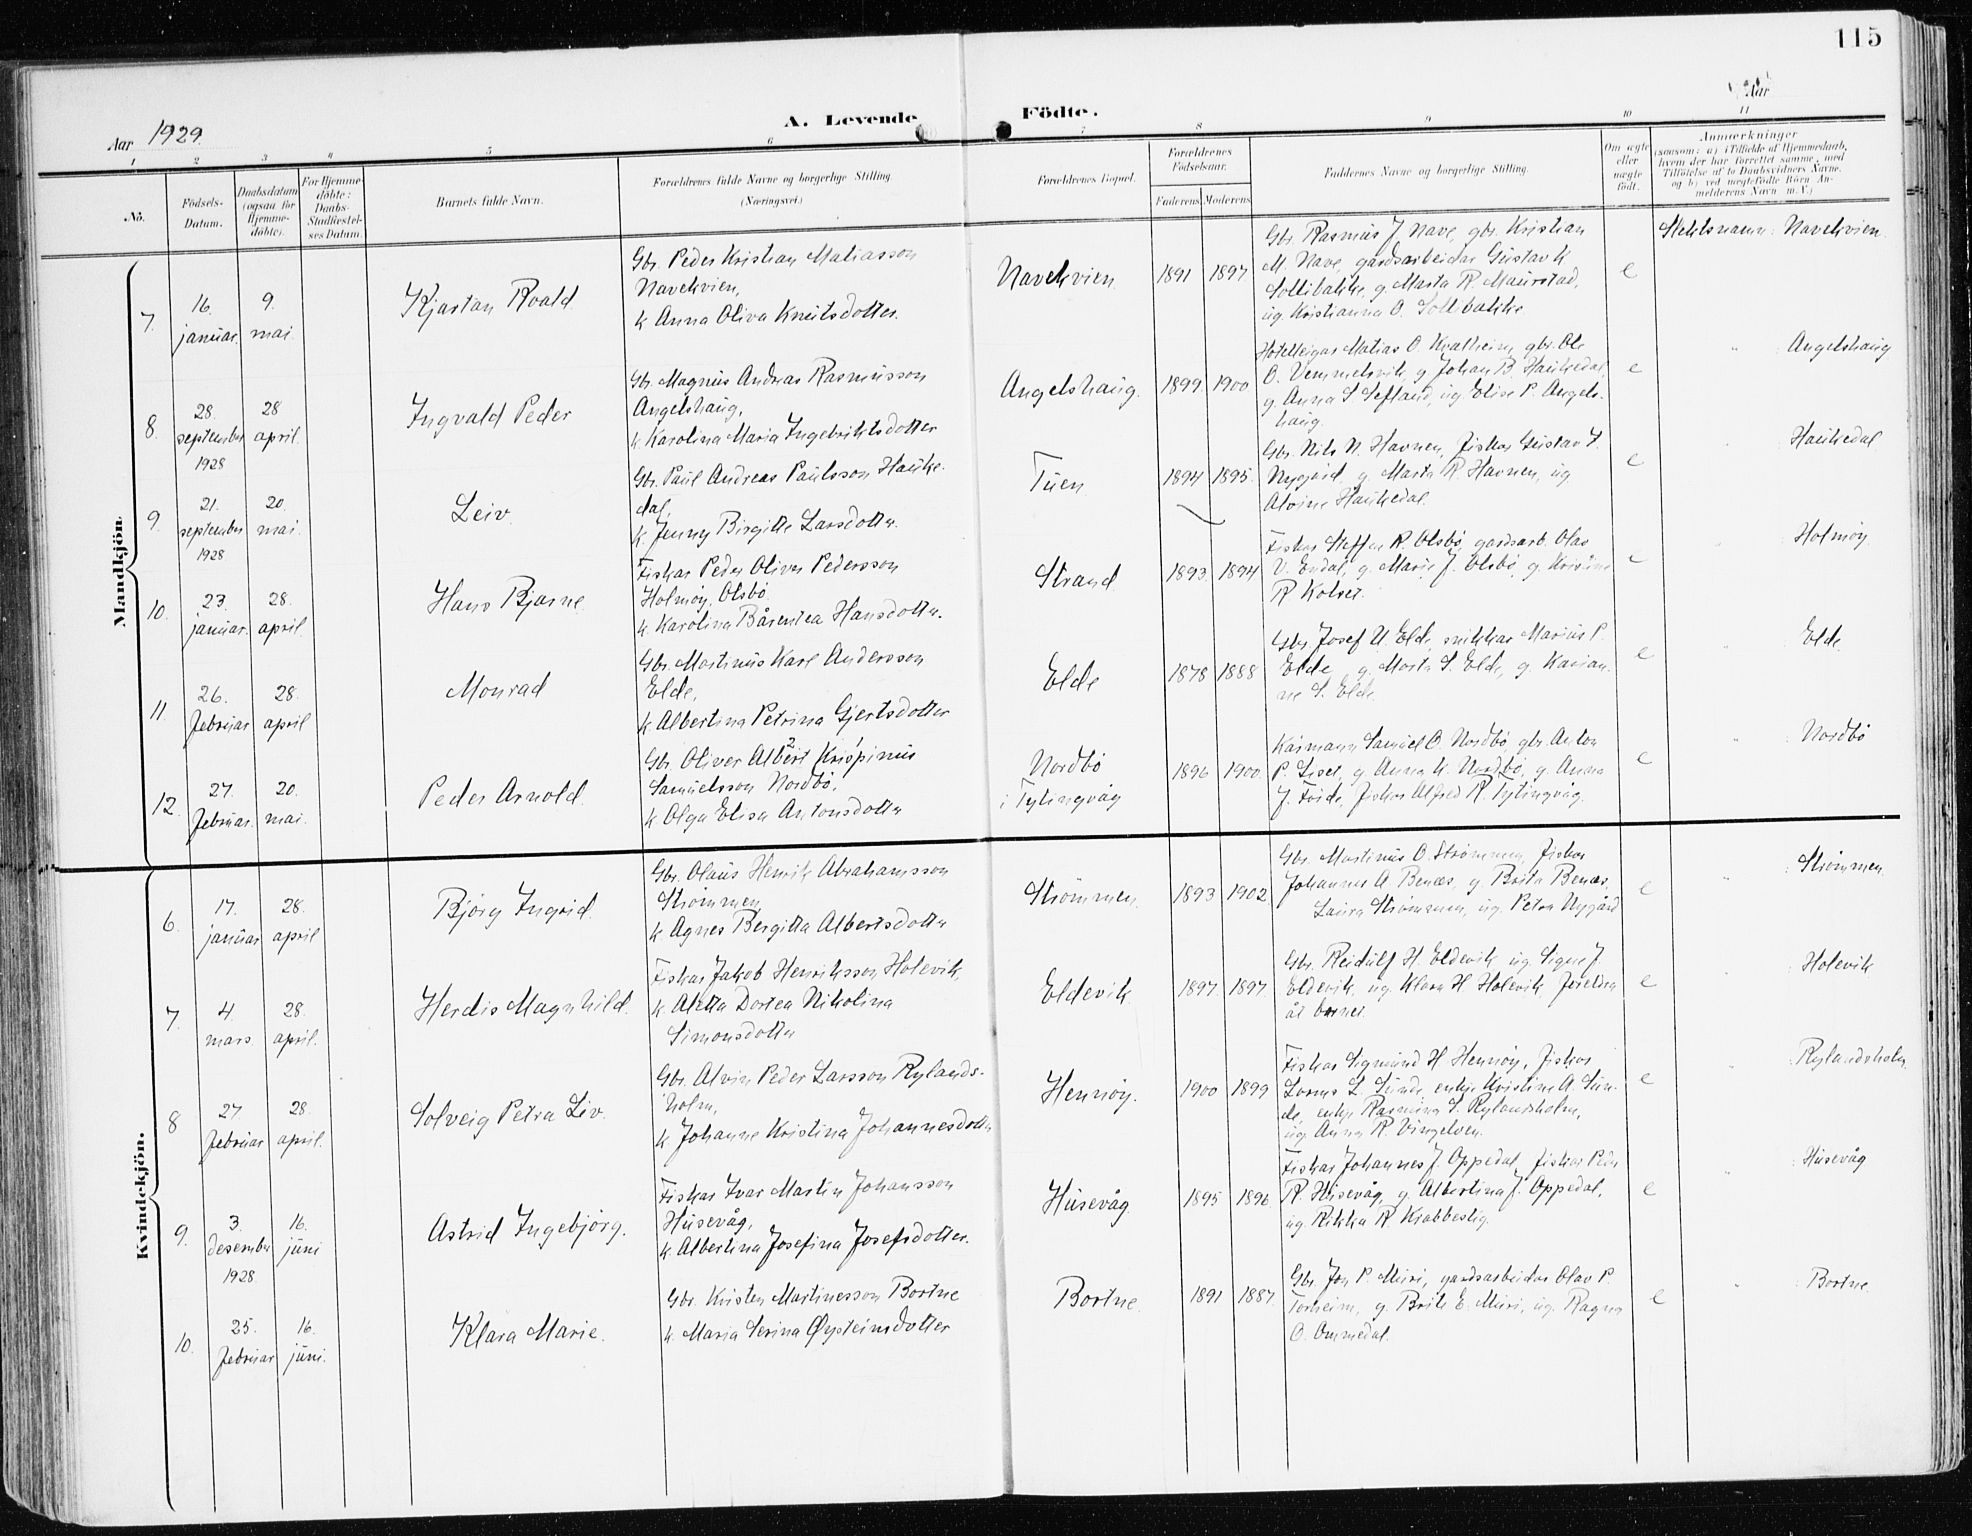 115
Aar 1929.
A. Levende Födte.
Aar
1 2 3 4 5 6 7 8 9 10 11
No.
Födsels-Datum.
Daabsdatum (ogsaa for Hjemmedöbte).
For Hjemmedöbte: Daabs-Stadfæstelses Datum.
Barnets fulde Navn.
Forældrenes fulde Navne og borgerlige Stilling. (Næringsvei.)
Forældrenes Bopæl.
Forældrenes Födselsaar.
Faderens Moderens
Faddernes Navne og borgerlige Stilling.
Om ægte eller uægte födt.
Anmærkninger
(saasom: a) i Tilfælde af Hjemmedaab, hvem der har forrettet samme, med Tilföielse af to Daabsvidners Navne. og b) ved uægtefödte Börn Anmelderens Navn m. V.)
Mandkjön.
7. 16. januar. 9. mai. Kjartan Roald
Gbr. Peder Kristian Matiasson
Navekvien,
k Anna Oliva Knutsdotter.
Navekvien 1891 1897
Gbr. Rasmus J Nave, gbr. Kristian
M. Nave, gardsarbeidar Gustav K
Sollibakke, g Marta R. Maurstad,
ug. Kristianna O. Sollibakke
e Slektsnamn: Navekvien.
8. 28. september 1928 28 april. Ingvald Peder
Gbr. Magnus Andreas Rasmusson
Angelshaug,
k Karolina Maria Ingebriktsdotter
Angelshaug. 1899 1900
Hotelleigar Matias O Kvalheim, gbr. Ole
O. Vemmelsvik, g Johan B Haukedal,
g. Anna S Sefland, ug. Elise P. Angels-
haug.
e " : Angelshaug
9. 21. september 1928 20. mai. Leiv.
Gbr. Paul Andreas Paulsson Hauke-
dal,
k. Jenny Birgitte Larsdotter.
Tuen 1894 1895.
Gbr. Nils N. Havnen, fiskar Gustav
Nygård, g. Marta R Havnen, ug
Alvine Haukedal.
e Haukedal
10. 23. januar. 28. april Hans Bjarne
Fiskar Peder Oliver Pedersson
Holmøy, Olsbø
k. Karolina Bårentea Hansdotter.
Strand 1893 1894
Fiskar Steffen R. Olsbø, gardsarb. Olav
V. Endal, g. Marie J. Olsbø, g. Kristine
R Kolset.
e Holmøy.
11. 26. februar 28. april Monrad
Gbr. Martinus Karl Andersson
Elde,
k Albertina Petrina Gjertsdotter
Elde 1878 1888
Gbr. Josef U. Elde, snikkar Marius P.
Elde, g. Marta S. Elde, g. Karian-
ne S. Elde.
e " Elde
12. 27. februar. 20. mai. Peder Arnold.
2 1
Gbr. Oliver Albert Krispinus
Samuelsson Nordbø,
k Olga Elisa Antonsdotter
Nordbø
i Tytingvåg 1896 1900
Kårmann Samuel O. Nordbø, gbr. Anton
P. Liset, g. Anna K. Nordbø, g. Anna
J. Førde, fiskar Alfred R. Tytingvåg.
e " : Nordbø
Kvindekjön.
6. 17. januar 28. april Bjørg Ingrid.
Gbr. Olaus Henrik Abrahamsson
Strømmen,
k Agnes Bergitta Albertsdotter
Strømmen, 1893 1902
Gbr. Martinus O. Strømmen, fiskar
Johannes A Benæs, g Brita Benæs,
Laura Strømmen, ug. Petra Nygård
e " : Strømmen.
7. 4. mars. 28. april. Herdis Magnhild.
Fiskar Jakob Henriksson Holevik,
k Aletta Dortea Nikolina
Simonsdotter
Eldevik 1897 1897.
Gbr. Reidulf H. Eldevik ug. Signe J.
Eldevik, ug. Klara H Holevik, foreldra
åt barnet.
e Holevik
8 27. februar 28. april. Solveig Petra Liv.
Gbr. Alvin Peder Larsson Rylands-
holm,
k. Johanne Kristina Johannesdotter
Hennøy. 1900 1899
Fiskar Sigmund H Hennøy, fiskar
L. Sunde, enkje Kristine A. Sun-
de, enkje Rasmina S. Rylandsholm,
ug. Anna R. Vingelven.
e " : Rylandsholm.
9. 3. desember 1928. 16. juni Astrid Ingebjørg.
Fiskar Ivar Martin Johansson
Husevåg,
k. Albertina Josefina Josefsdotter.
Husevåg 1895 1896
Fiskar Johannes J. Oppedal, fiskar Peder
R. Husevåg, g. Albertina J. Oppedal,
ug. Rikka R. Krabbestig.
e " : Husevåg
10. 25. februar 16. juni. Klara Marie.
Gbr. Kristen Martinesson Bortne
k. Maria Serina Øysteinsdotter
Bortne. 1891 1887.
Gbr. Jon P. Muri, gardsarbeidar Olav P.
Torheim, g. Brite E. Muri, ug. Ragna
O. Ommedal.
e " : Bortne.